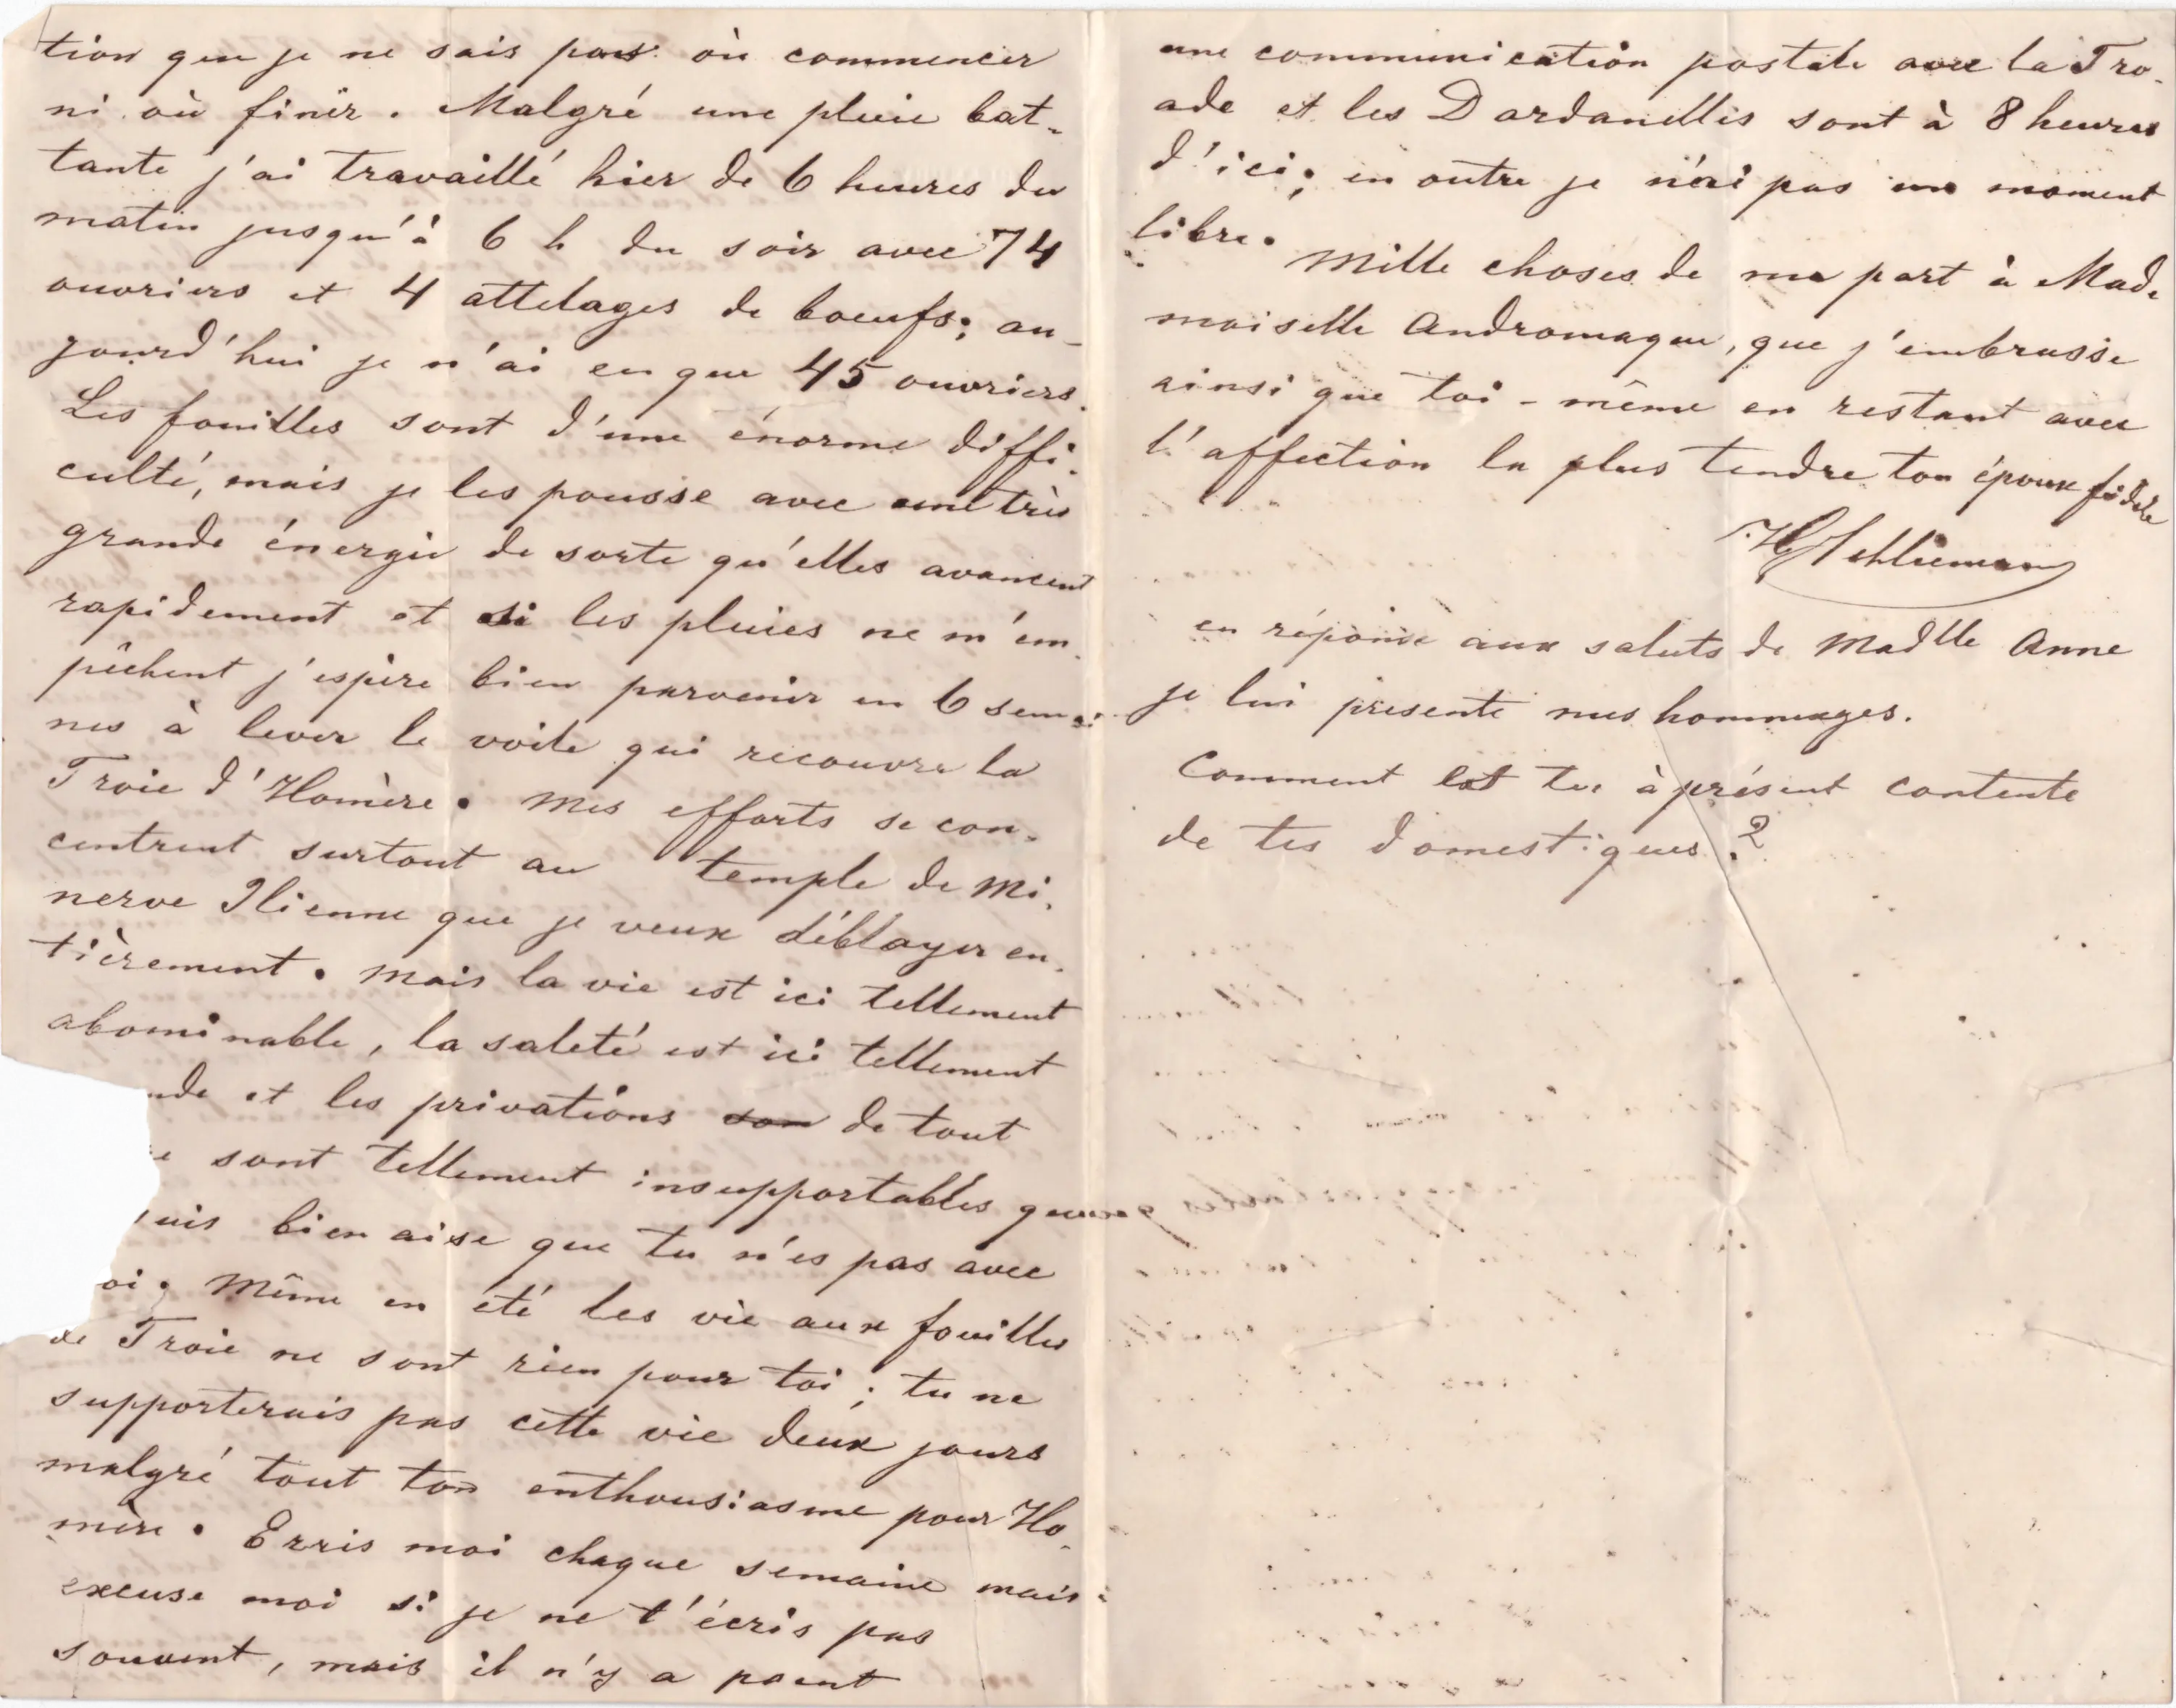 tion que je ne sais pas où commencer
ni où finir. Malgré une pluie bat-
tante j'ai travaillé hier de 6 heures du
matin jusqu'à 6 h du soir avec 74
ouvriers et 4 attelages de boeufs; au-
jourd'hui je n'ai eu que 45 ouvriers.
Les fouilles sont d'une énorme diffi-
culté, mais je les pousse avec une très
grande énergie de sorte qu'elles avancent
rapidement et si les pluies ne m'em-
pêchent j'espère bien parvenir en 6 semai-
nes à lever le voile qui recouvre la
Troie d'Homère. Mes efforts se con-
centrent surtout au temple de Mi-
nerve Ilienne que je veux déblayer en-
tièrement. Mais la vie est ici tellement
abominable, la saleté est ici tellement
nde et les privations son de tout
e sont tellement insupportables que
uis bien aise que tu n'es pas avec
oi. Même en été les vie aux fouilles
de Troie ne sont rien pour toi; tu ne
supporterais pas cette vie deux jours
malgré tout ton enthousiasme pour Ho-
mère. Ecris moi chaque semaine mais
excuse moi si je ne t'écris pas
souvent, mais il n'y a point
une communication postale avec la Tro-
ade et les Dardanelles sont à 8 heures
d'ici; en outre je n'ai pas un moment
libre.
Mille choses de ma part à Made
moiselle Andromaque, que j'embrasse
ainsi que toi-même en restant avec
l'affection la plus tendre ton époux fidèle
HySchliemann
en réponse aux saluts de Madlle Anne
je lui présente mes hommages.
Comment est tu à présent contente
de tes domestiques?